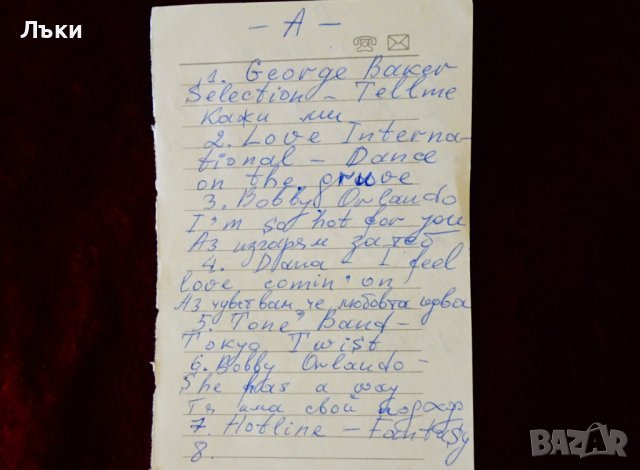 Лъки
- A -
1. George Baker
Selection - Tell me
Кажи ми
2. Love Interna-
tional - Dance
on the gruve
3. Bobby Orlando
I'm so hot for you
Аз изгарям за теб
4. Dana I feel
love comin' on
Аз чувствам, че любовта идва
5. Tone Band -
Токуо Twist
6. Bobby Orlando -
She has a way
Тя има свой
7. Hotline - Fantasy
8.
BAZAR